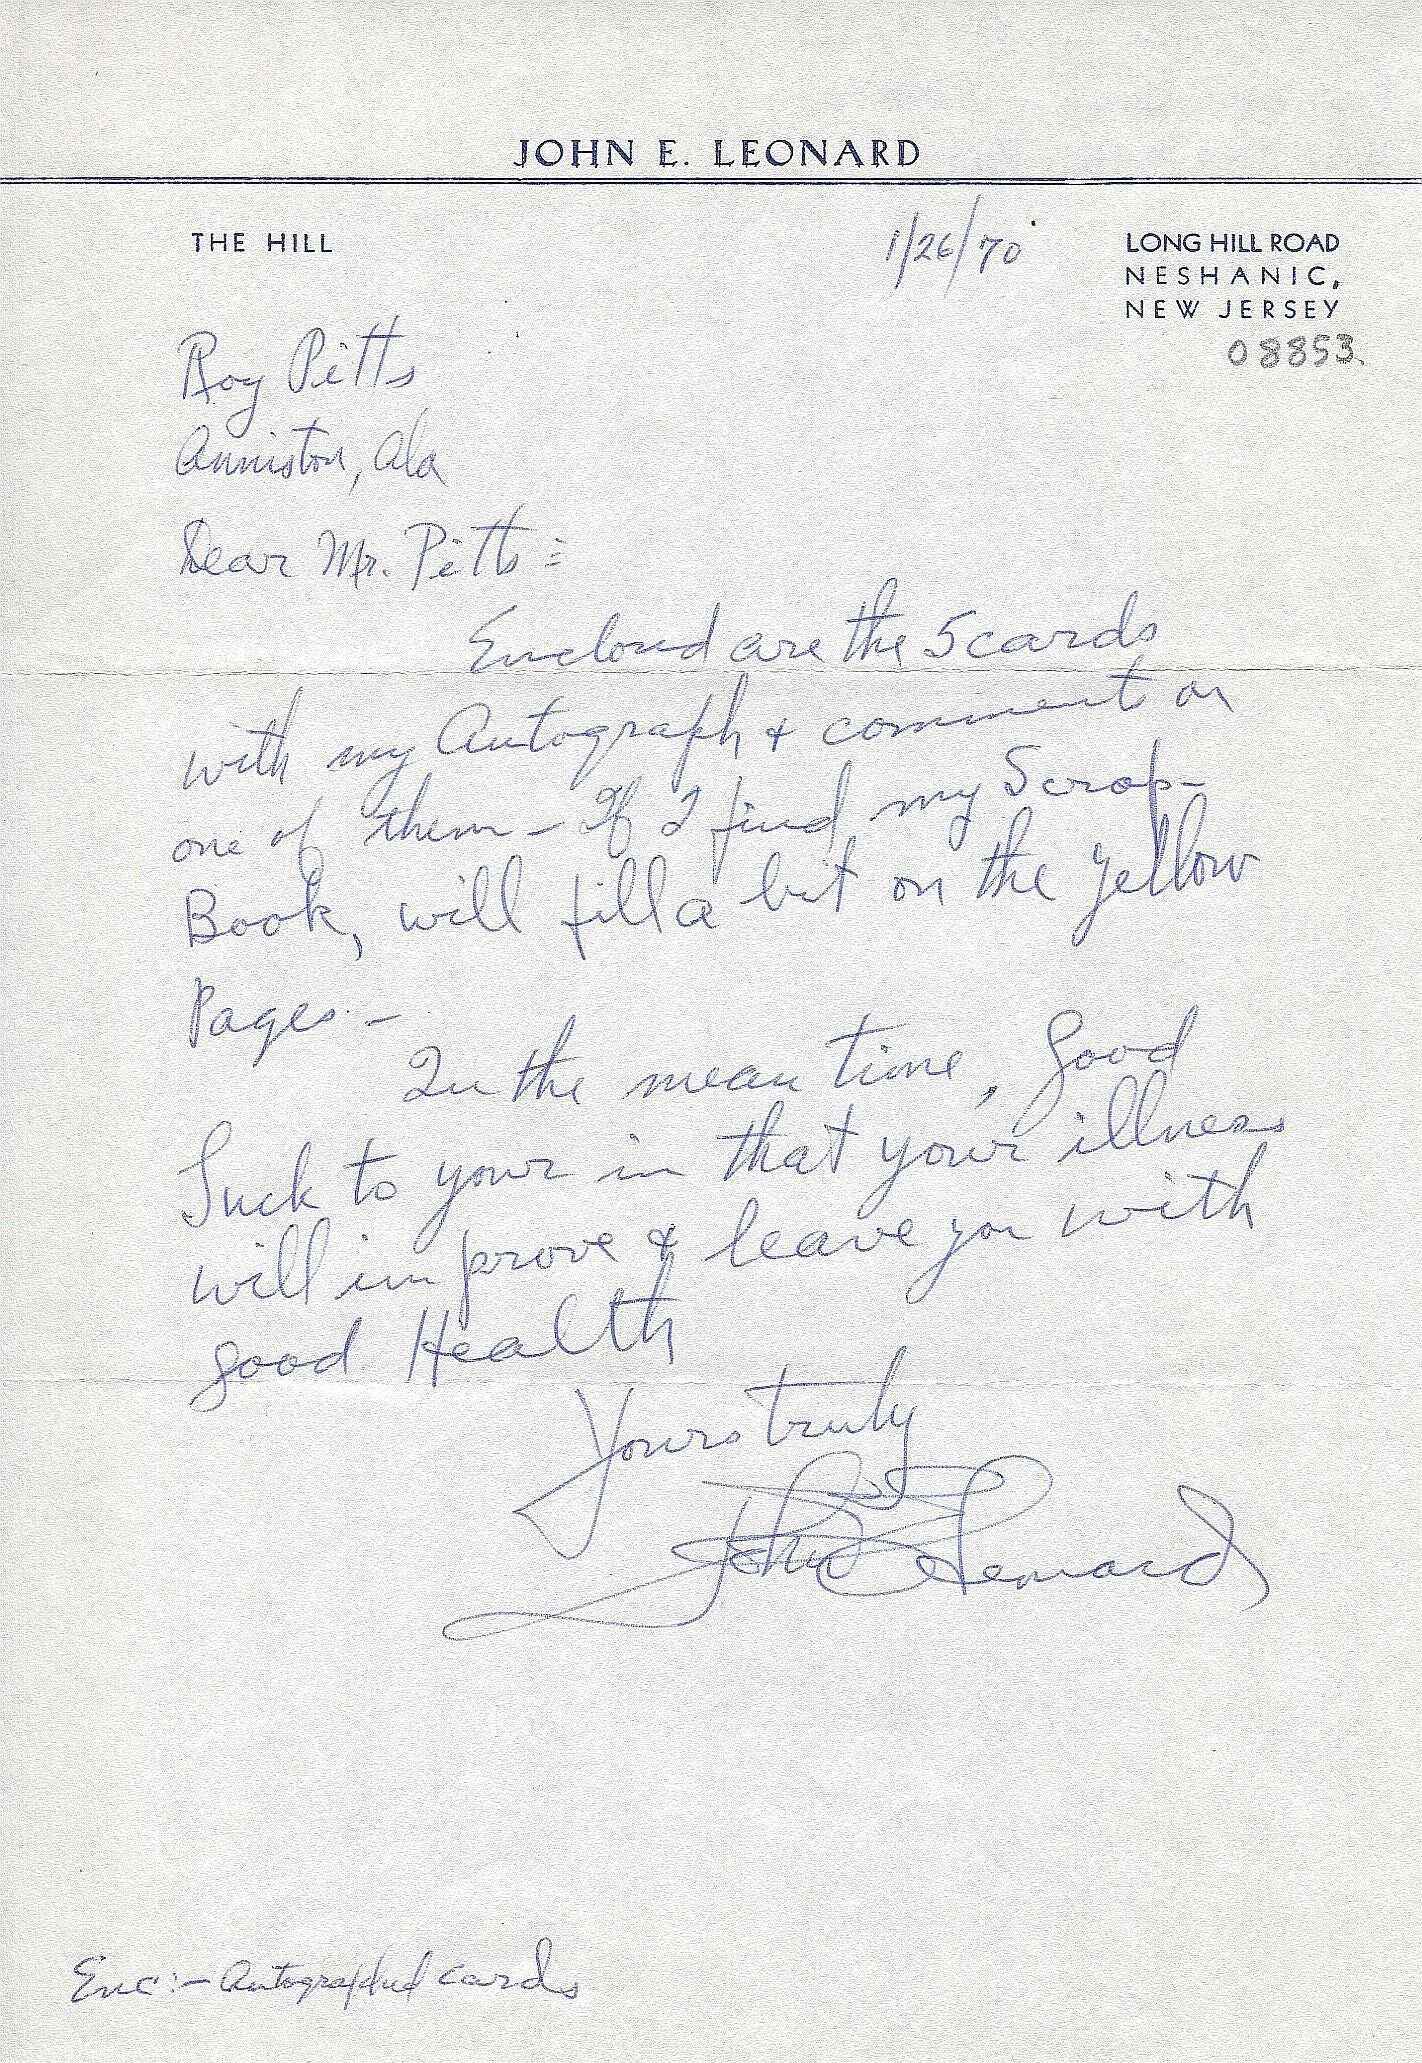 JOHN E. LEONARD
THE HILL
1/26/70
LONG HILL ROAD
NESHANIC,
NEW JERSEY
08853.
Roy Pitts
Anniston, Ala
Dear Mr. Pitts:
Enclosed are the 5 cards
with my Autograph & comment on
one of them - If I find my Scrap-
Book, will fill a bit on the Yellow
Pages. -
In the mean time, Good
Luck to your in that your illness
will improve & leave you with
good Health
Yours truly
John E Leonard
Enc:- Autographed cards